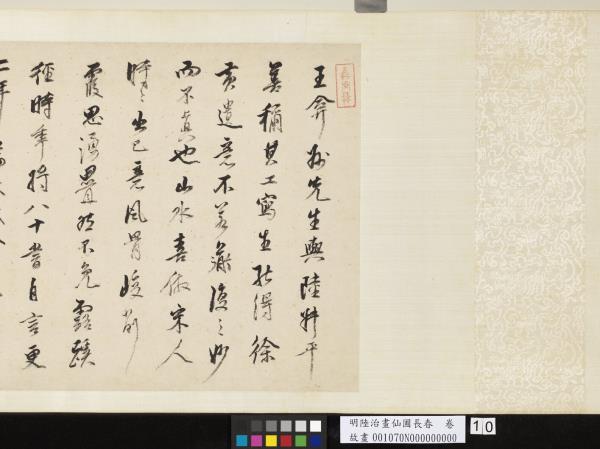 王弇州先生與陸叔平
善稱其工寫生能得徐
黃遺意不若復之妙
而不真也山水喜倣宋人
時〻出己意風骨峻削
霞思湧疊然不免露蹊
徑時年將八十嘗自言更
二年
明陸治畫仙圃長春 卷
故畫 001070N000000000
10